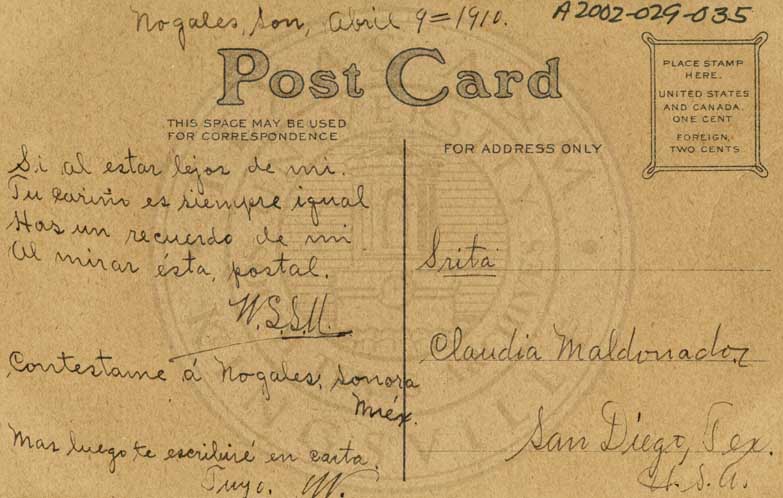 Nogales, Son, Abril 9=1910.
A2002-029-035
Post Card
PLACE STAMP
HERE.
UNITED STATES
AND CANADA.
ONE CENT
FOREIGN,
TWO CENTS
THIS SPACE MAY BE USED
FOR CORRESPONDENCE
FOR ADDRESS ONLY
Si al estar lejos de mi.
Tu cariño es siempre igual
Has un recuerdo de mi
Al mirar ésta, postal.
W.S.S.U.
Contestame á Nogales, Sonora
Méx.
Mas luego te escribiré en carta
Tuyo. W.
Srita
Claudia Maldonado.
San Diego, Tex.
U.S.A.